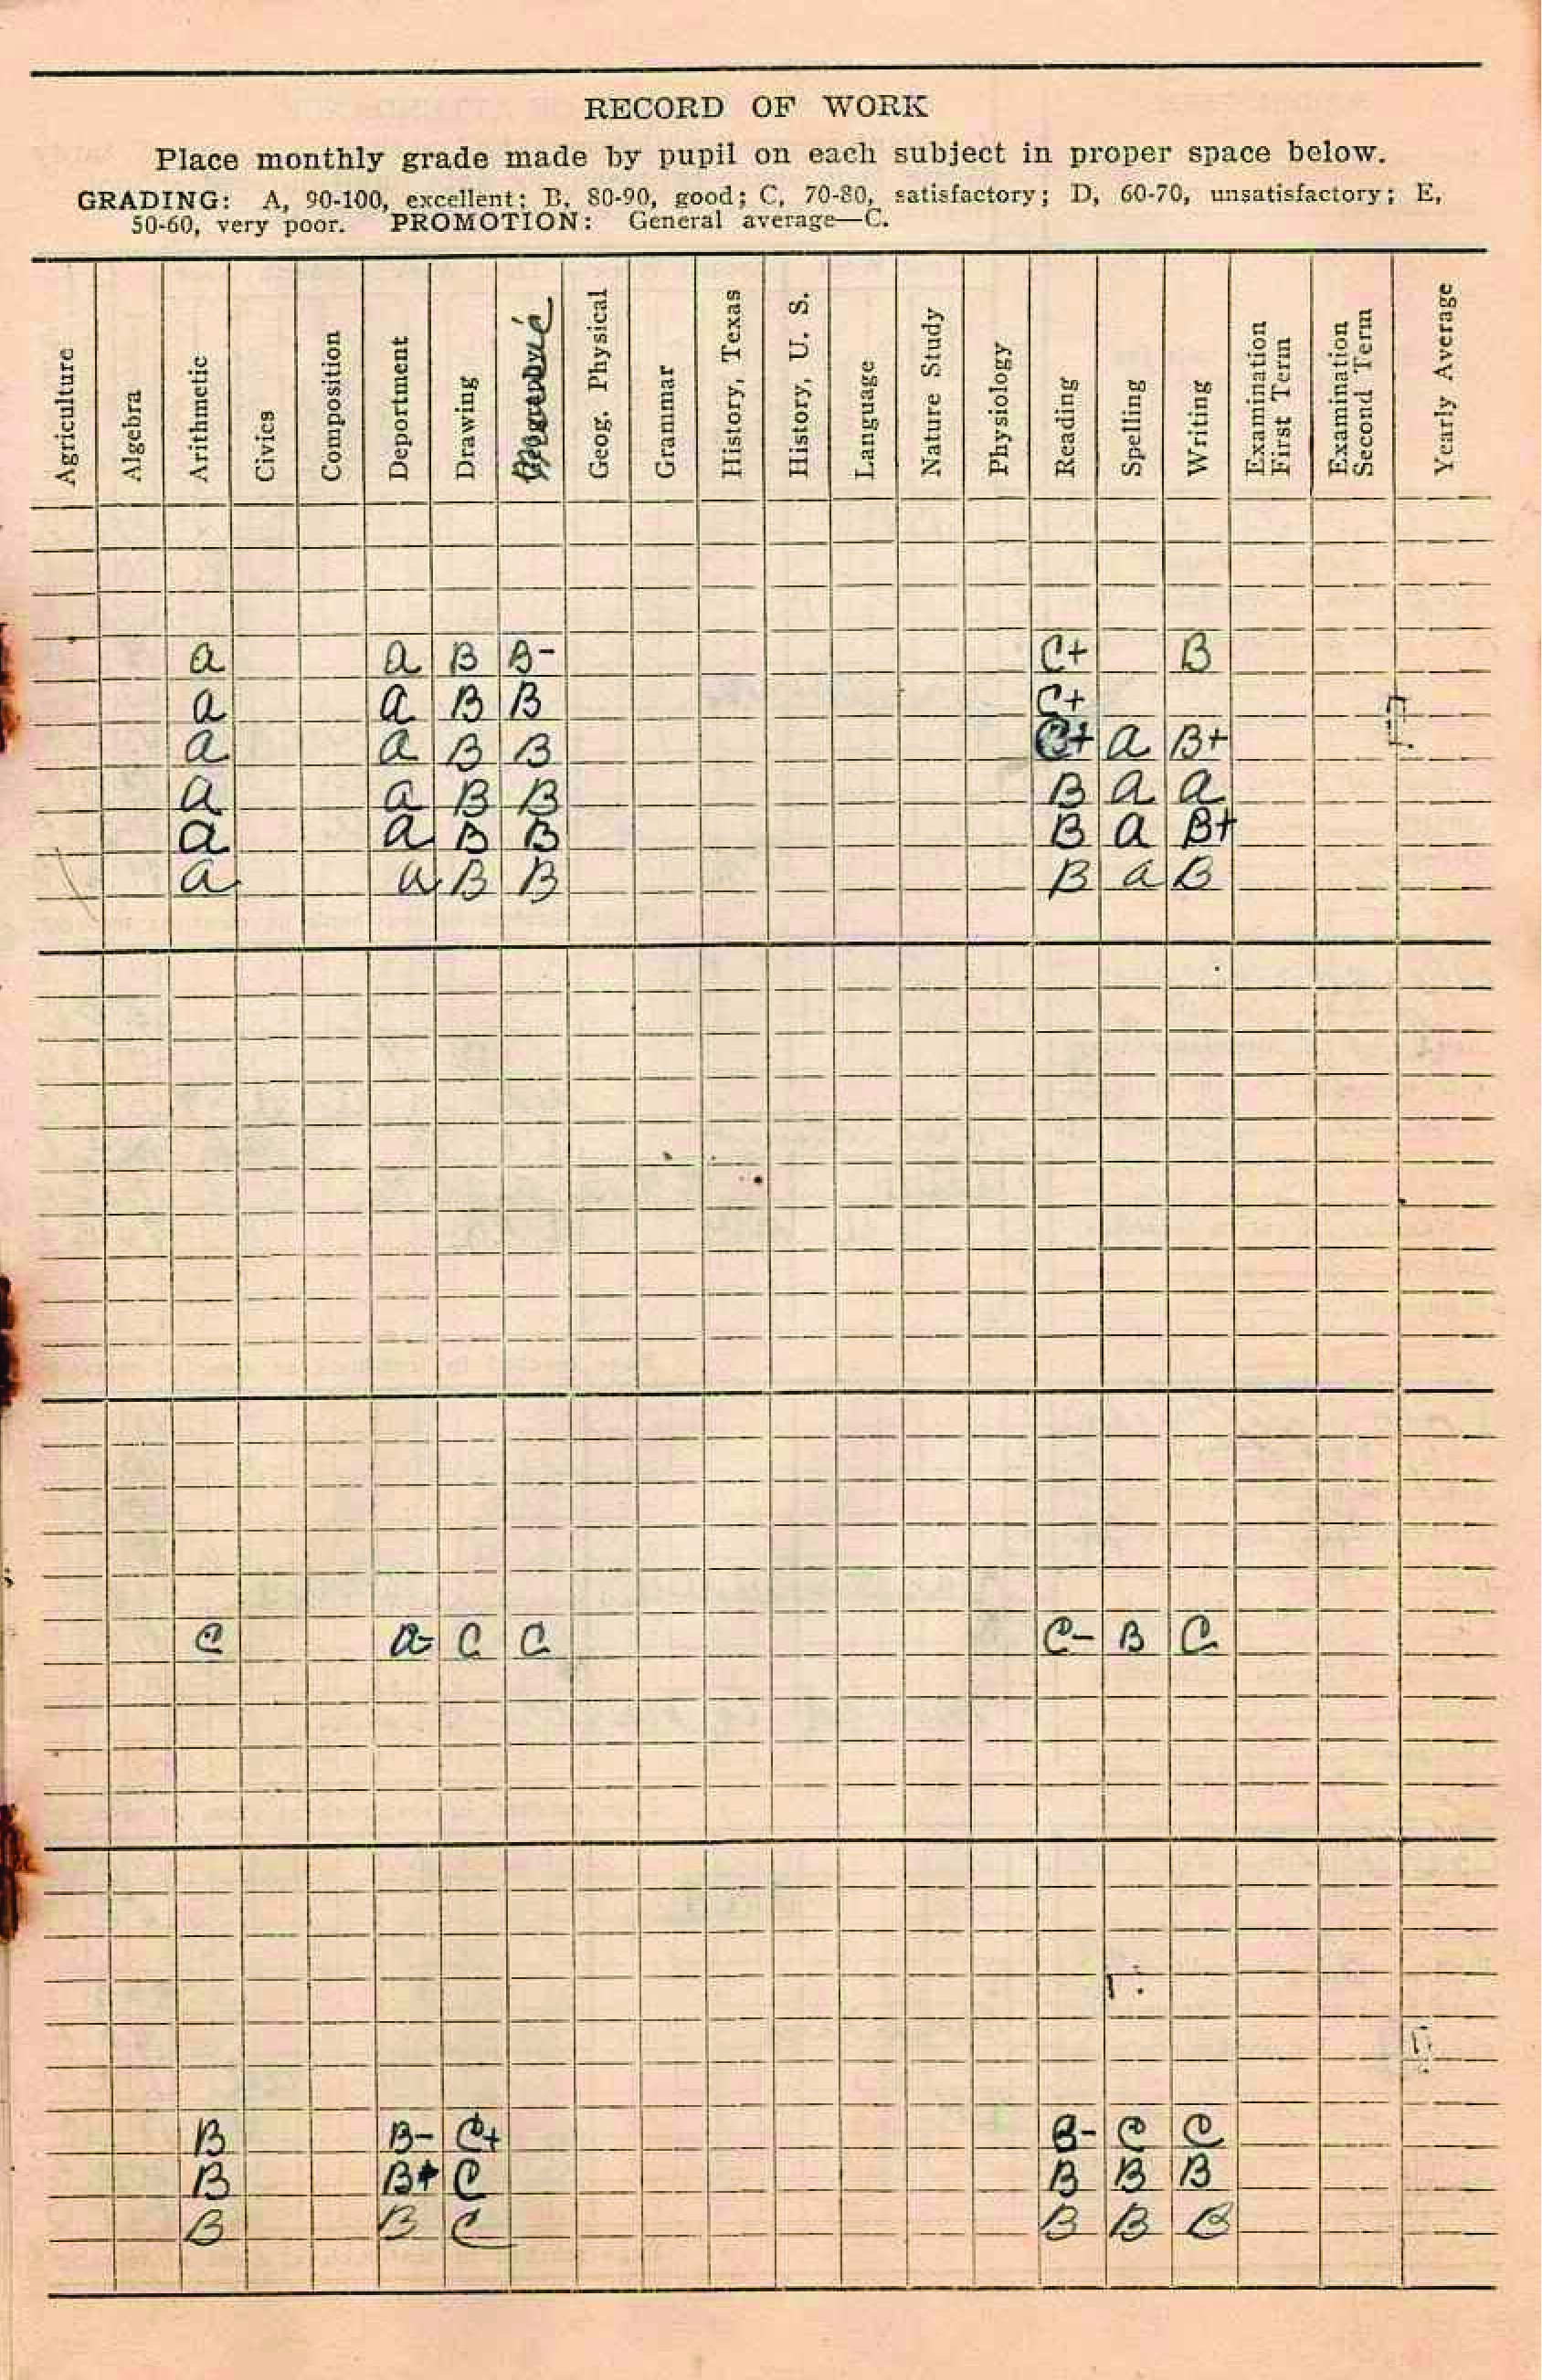 RECORD OF WORK
Place monthly grade made by pupil on each subject in proper space below.
GRADING: A, 90-100, excellent; B, 80-90, good; C, 70-80, satisfactory; D, 60-70, unsatisfactory; E,
50-60, very poor. PROMOTION: General average—C.
Agriculture
Algebra
Arithmetic
Civics
Composition
Deportment
Drawing
Geog. Physical
Grammar
History, Texas
History, U. S.
Language
Nature Study
Physiology
Reading
Spelling
Writing
Examination First Term
Examination Second Term
Yearly Average
a a B B- C+ B
a a B B C+
a a B B C+ a B+
a a B B B a a
a a B B B a B+
a a B B B a B
C a- C C C- B C
B B- C+ B- C C
B B+ C B B B
B B C B B B